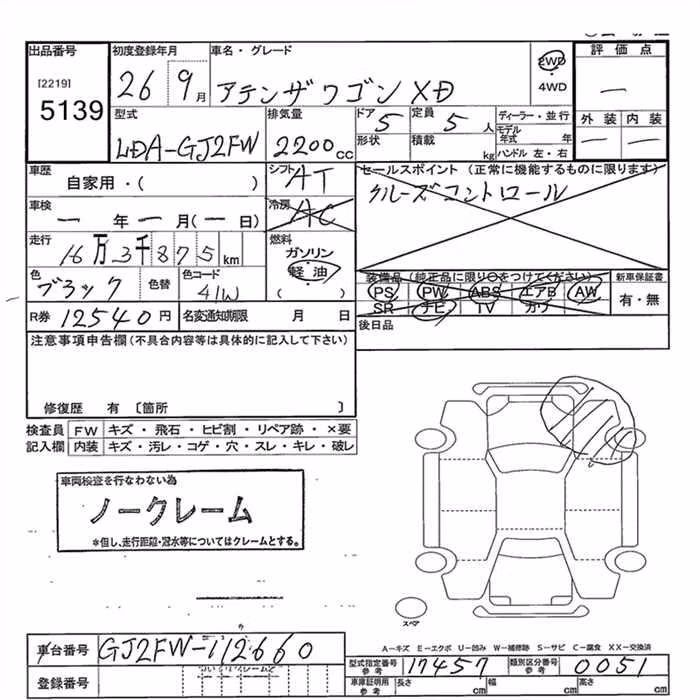 出品番号 初度登録年月 車名・グレード 評価点
[2219] 5139 26 9月 アテンザワゴン XD 2WD ・ 4WD ー
型式 排気量 ドア 定員 ディーラー・並行 外装 内装
LDA-GJ2FW 2200cc 5 5人 モデル年式 年 ー ー
形状 積載 kg ハンドル 左・右
車歴 シフト AT セールスポイント (正常に機能するものに限ります)
自家用・( ) クルーズコントロール
車検 冷房 AC
ー年ー月(ー日)
走行 16万3千875km 燃料 ガソリン
軽油
( )
色 ブラック 色替 色コード 41W
装備品(純正品に限り○をつけてください) 新車保証書
PS PW ABS エアB AW 有・無
SR ナビ TV カワ
R券 12540円 名変通知期限 月 日 後日品
注意事項申告欄(不具合内容等は具体的に記入して下さい)
修復歴 有 〔箇所 〕
検査員 FW キズ・飛石・ヒビ割・リペア跡・×要
記入欄 内装 キズ・汚レ・コゲ・穴・スレ・キレ・破レ
車両検査を行なわない為
ノークレーム
*但し、走行距離・冠水等についてはクレームとする。
スペア
A-キズ E-エクボ U-凹み W-補修跡 S-サビ C-腐食 XX-交換済
車台番号 GJ2FW-112660
型式指定番号 参考 17457 類別区分番号 参考 0051
登録番号 車庫証明用 参考 長さ cm 幅 cm 高さ cm